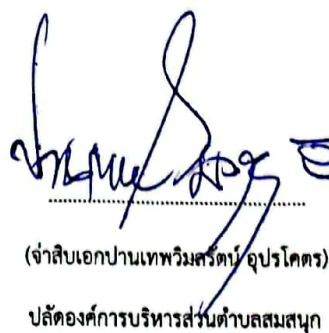 (จ่าสิบเอกปานเทพวิมลรัตน์ อุปรโคตร)
ปลัดองค์การบริหารส่วนตำบลสมสนุก